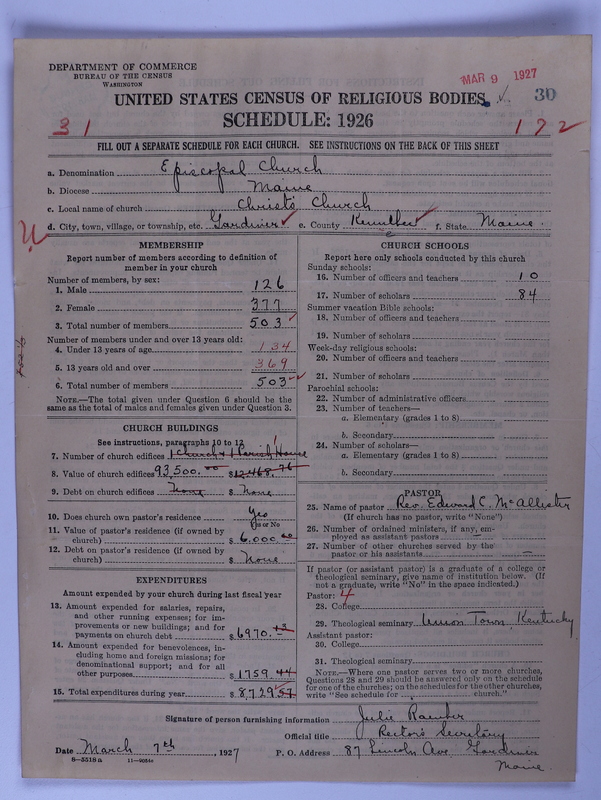 DEPARTMENT OF COMMERCE
BUREAU OF THE CENSUS
WASHINGTON
MAR 9 1927
30
UNITED STATES CENSUS OF RELIGIOUS BODIES
SCHEDULE: 1926
31
172
FILL OUT A SEPARATE SCHEDULE FOR EACH CHURCH. SEE INSTRUCTIONS ON THE BACK OF THIS SHEET
a. Denomination Episcopal Church
b. Diocese Maine
c. Local name of church Christs Church
d. City, town, village, or township, etc. Gardiner e. County Kennebec f. State Maine.
MEMBERSHIP
Report number of members according to definition of
member in your church
Number of members, by sex:
1. Male 126
2. Female 377
3. Total number of members 503
Number of members under and over 13 years old:
4. Under 13 years of age 134
5. 13 years old and over 369
6. Total number of members 503
NOTE.—The total given under Question 6 should be the
same as the total of males and females given under Question 3.
CHURCH BUILDINGS
See instructions, paragraphs 10 to 12
7. Number of church edifices 1 Church + 1 Parish House 1
8. Value of church edifices 93,500.00 $ 12468.76
9. Debt on church edifices None $ None
10. Does church own pastor's residence Yes
Yes or No
11. Value of pastor's residence (if owned by
church) $ 6,000.00
12. Debt on pastor's residence (if owned by
church) $ None
EXPENDITURES
Amount expended by your church during last fiscal year
13. Amount expended for salaries, repairs,
and other running expenses; for im-
provements or new buildings; and for
payments on church debt $ 6970.13
14. Amount expended for benevolences, in-
cluding home and foreign missions; for
denominational support; and for all
other purposes $ 1759.44
15. Total expenditures during year $ 8729.57
CHURCH SCHOOLS
Report here only schools conducted by this church
Sunday schools:
16. Number of officers and teachers 10
17. Number of scholars 84
Summer vacation Bible schools:
18. Number of officers and teachers
19. Number of scholars
Week-day religious schools:
20. Number of officers and teachers
21. Number of scholars
Parochial schools:
22. Number of administrative officers
23. Number of teachers—
a. Elementary (grades 1 to 8)
b. Secondary
24. Number of scholars—
a. Elementary (grades 1 to 8)
b. Secondary
PASTOR
25. Name of pastor Rev. Edward C. McAllister
(If church has no pastor, write "None")
26. Number of ordained ministers, if any, em-
ployed as assistant pastors —
27. Number of other churches served by the
pastor or his assistants —
If pastor (or assistant pastor) is a graduate of a college or
theological seminary, give name of institution below. (If
not a graduate, write "No" in the space indicated.)
Pastor: 4
28. College
29. Theological seminary Union Town Kentucky
Assistant pastor:
30. College
31. Theological seminary
NOTE.—Where one pastor serves two or more churches,
Questions 28 and 29 should be answered only on the schedule
for one of the churches; on the schedules for the other churches,
write "See schedule for church."
Signature of person furnishing information Julie
Official title Rector's Secretary
Date March 7th, 1927 P. O. Address 87 Lincoln Ave. Gardiner
Maine.
8—5518a 11—9054c